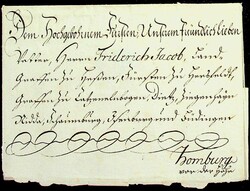 Dem Hochgebohrnem Fürsten, Unserm freundlich lieben
Vetter, Herrn Friderich Jacob, Land-
Grafen zu Heßen, Fürsten zu Herßfeldt,
Grafen zu Catzenelnbogen, Dietz, Ziegenhayn
Nidda, Schaumburg, Ysenburg und Büdingen
Homburg
vor der Höhe